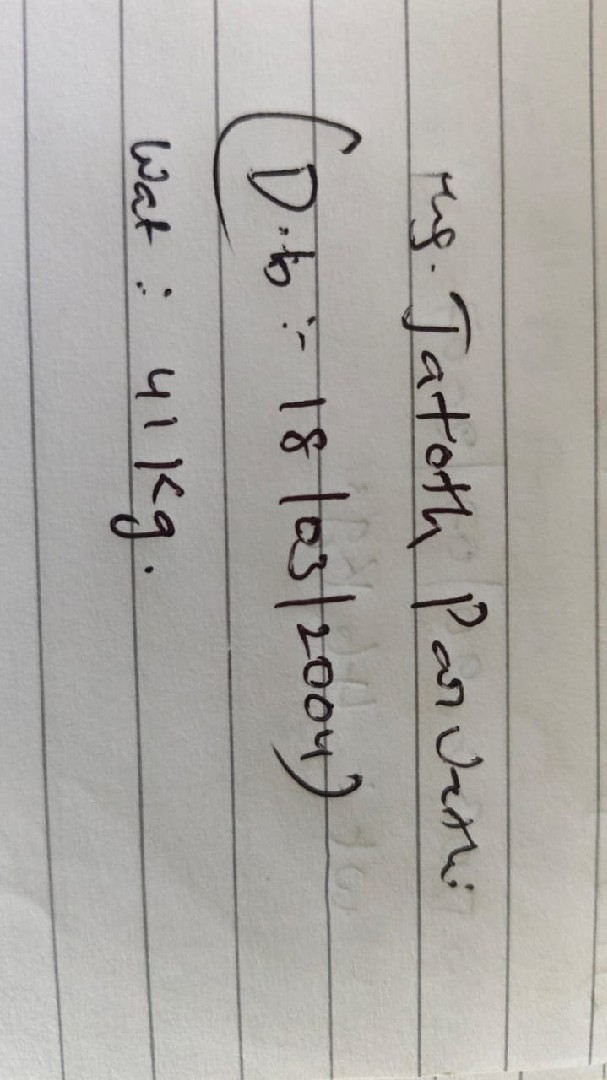 Jatoth Parvathi
(D.b :- 18/03/2004)
Wat : 41 Kg.